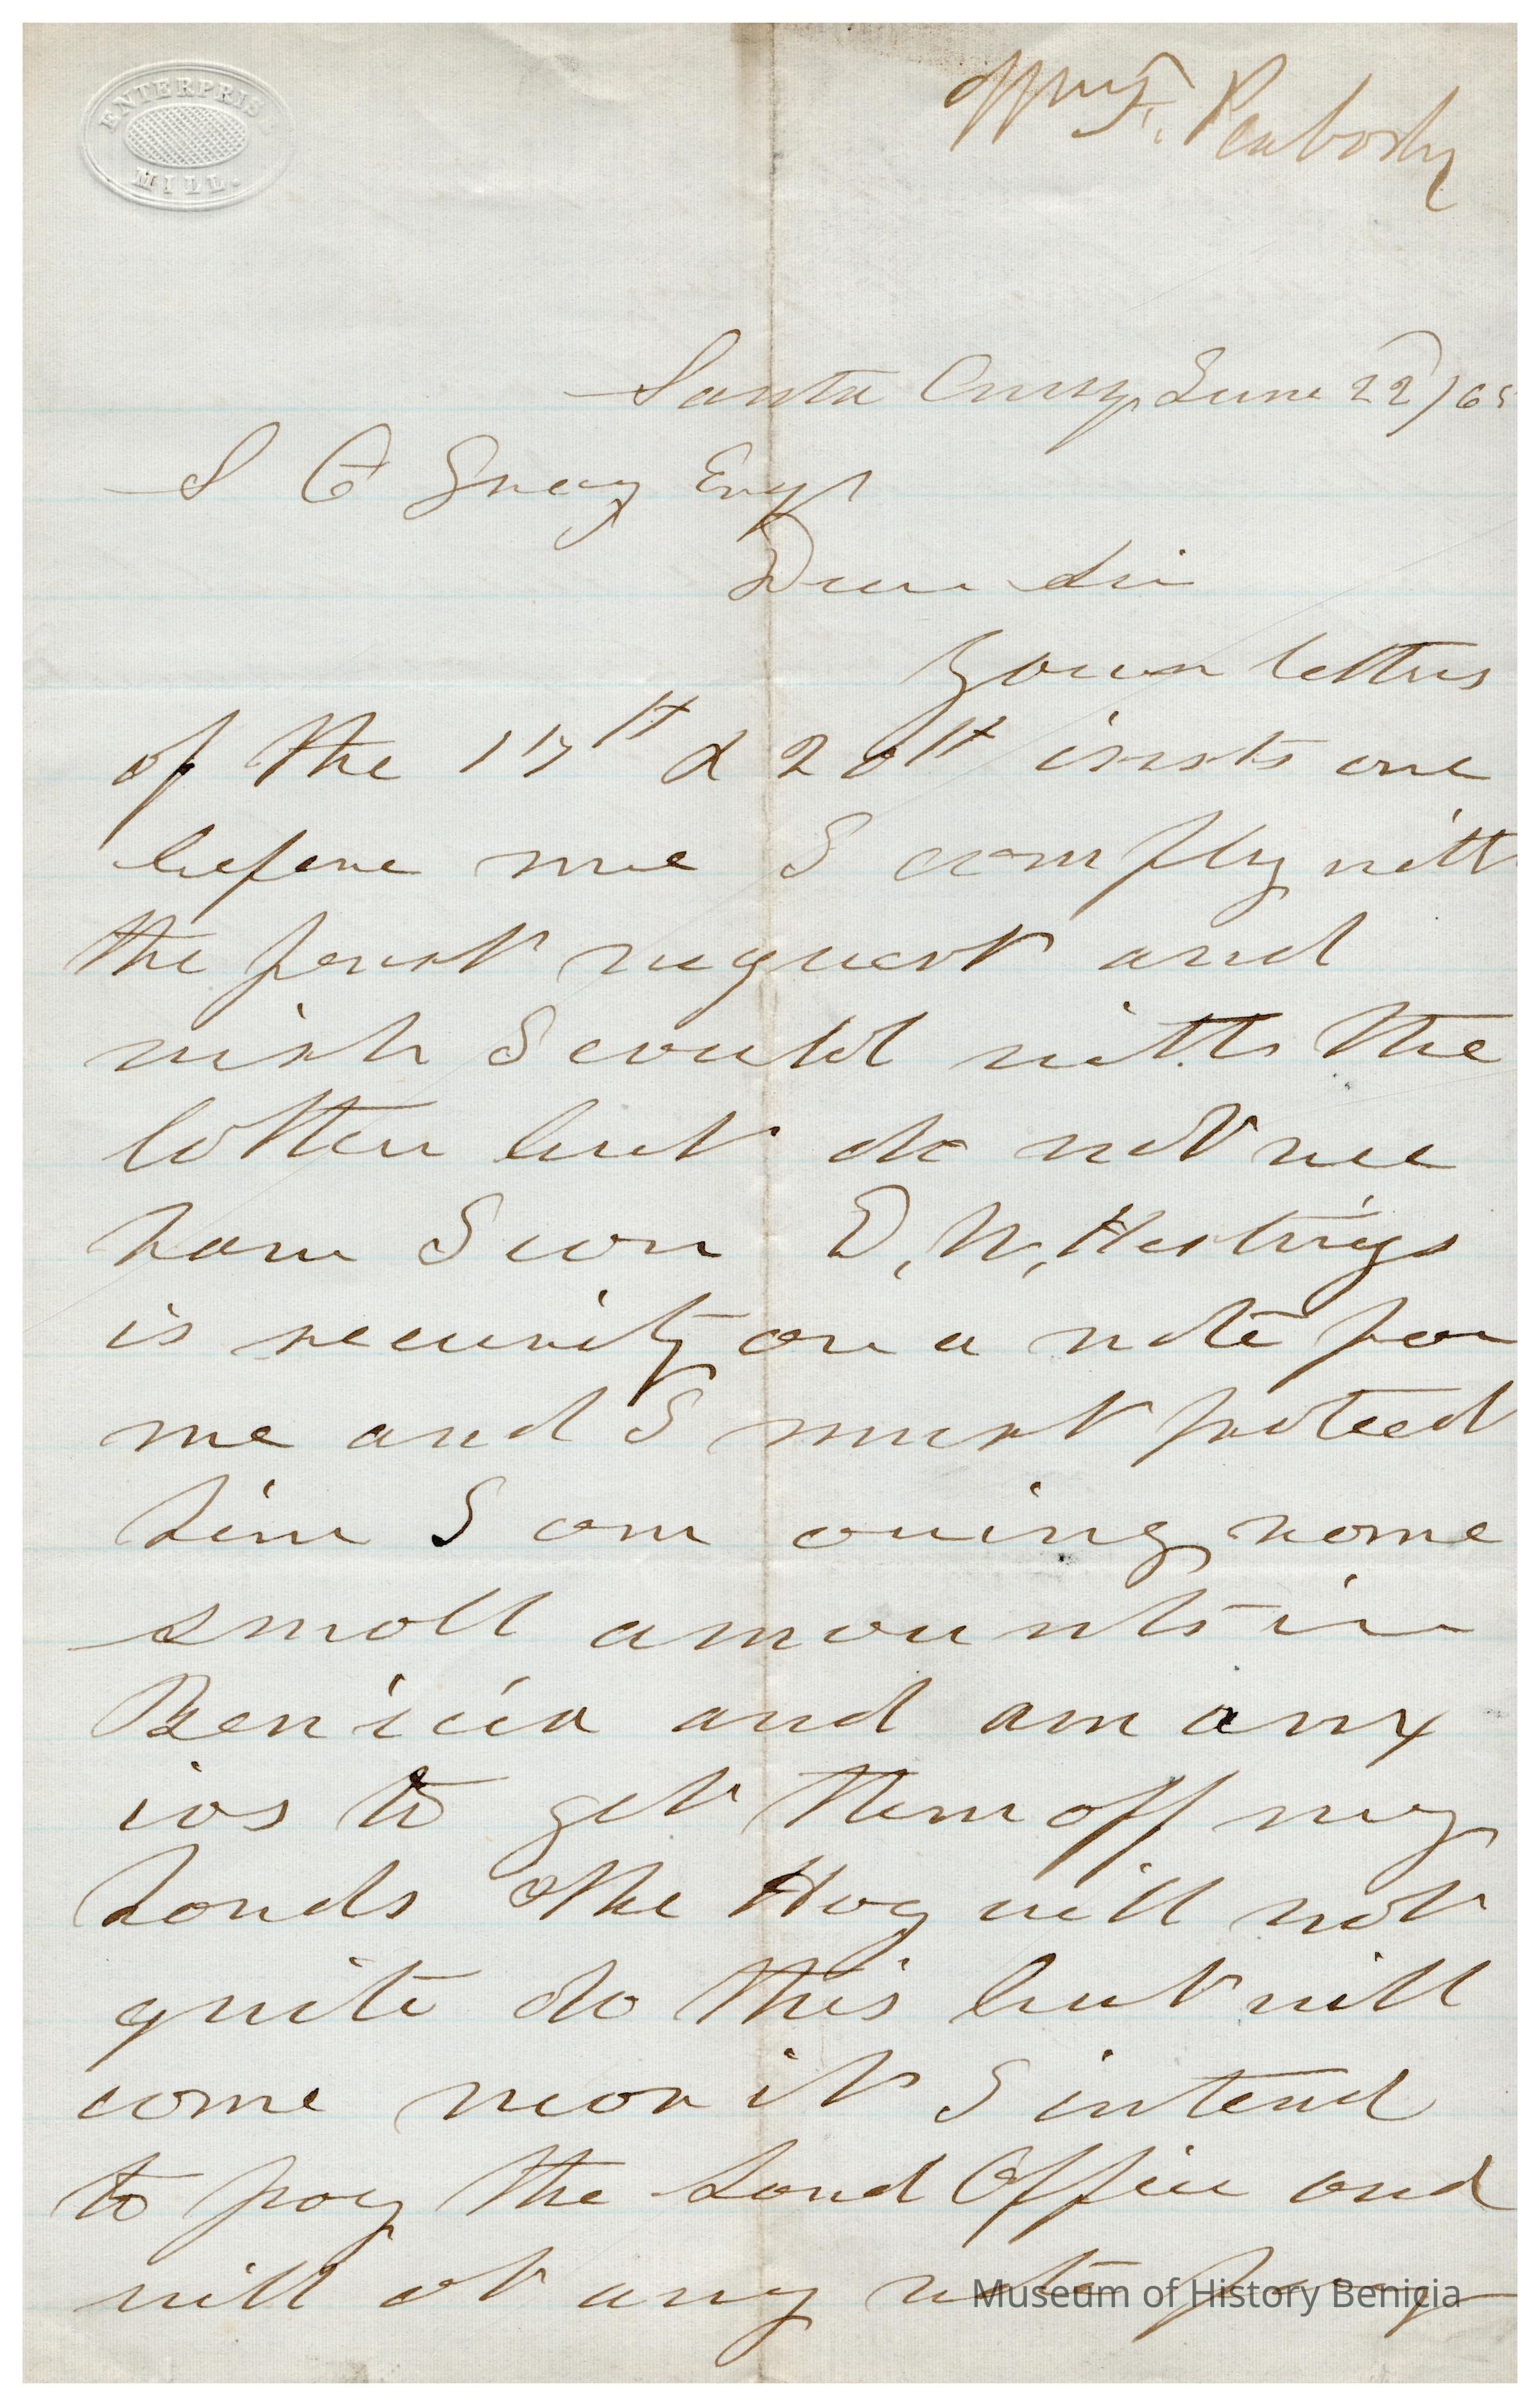 ENTERPRISE
MILL.
Wm F. Peabody
Santa Cruz June 22/65
S C Gray Esq
Dear Sir
Your letters
of the 17th & 20th insts are
before me I comply with
the first request and
wish I could with the
latter but do not see
how I can D. N. Hastings
is security on a note for
me and I must protect
him I am owing some
small amounts in
Benicia and am anx
ios to get them off my
hands The Hog will not
quite do this but will
come near it I intend
to pay the Land Office and
will at any rate pay
Museum of History Benicia